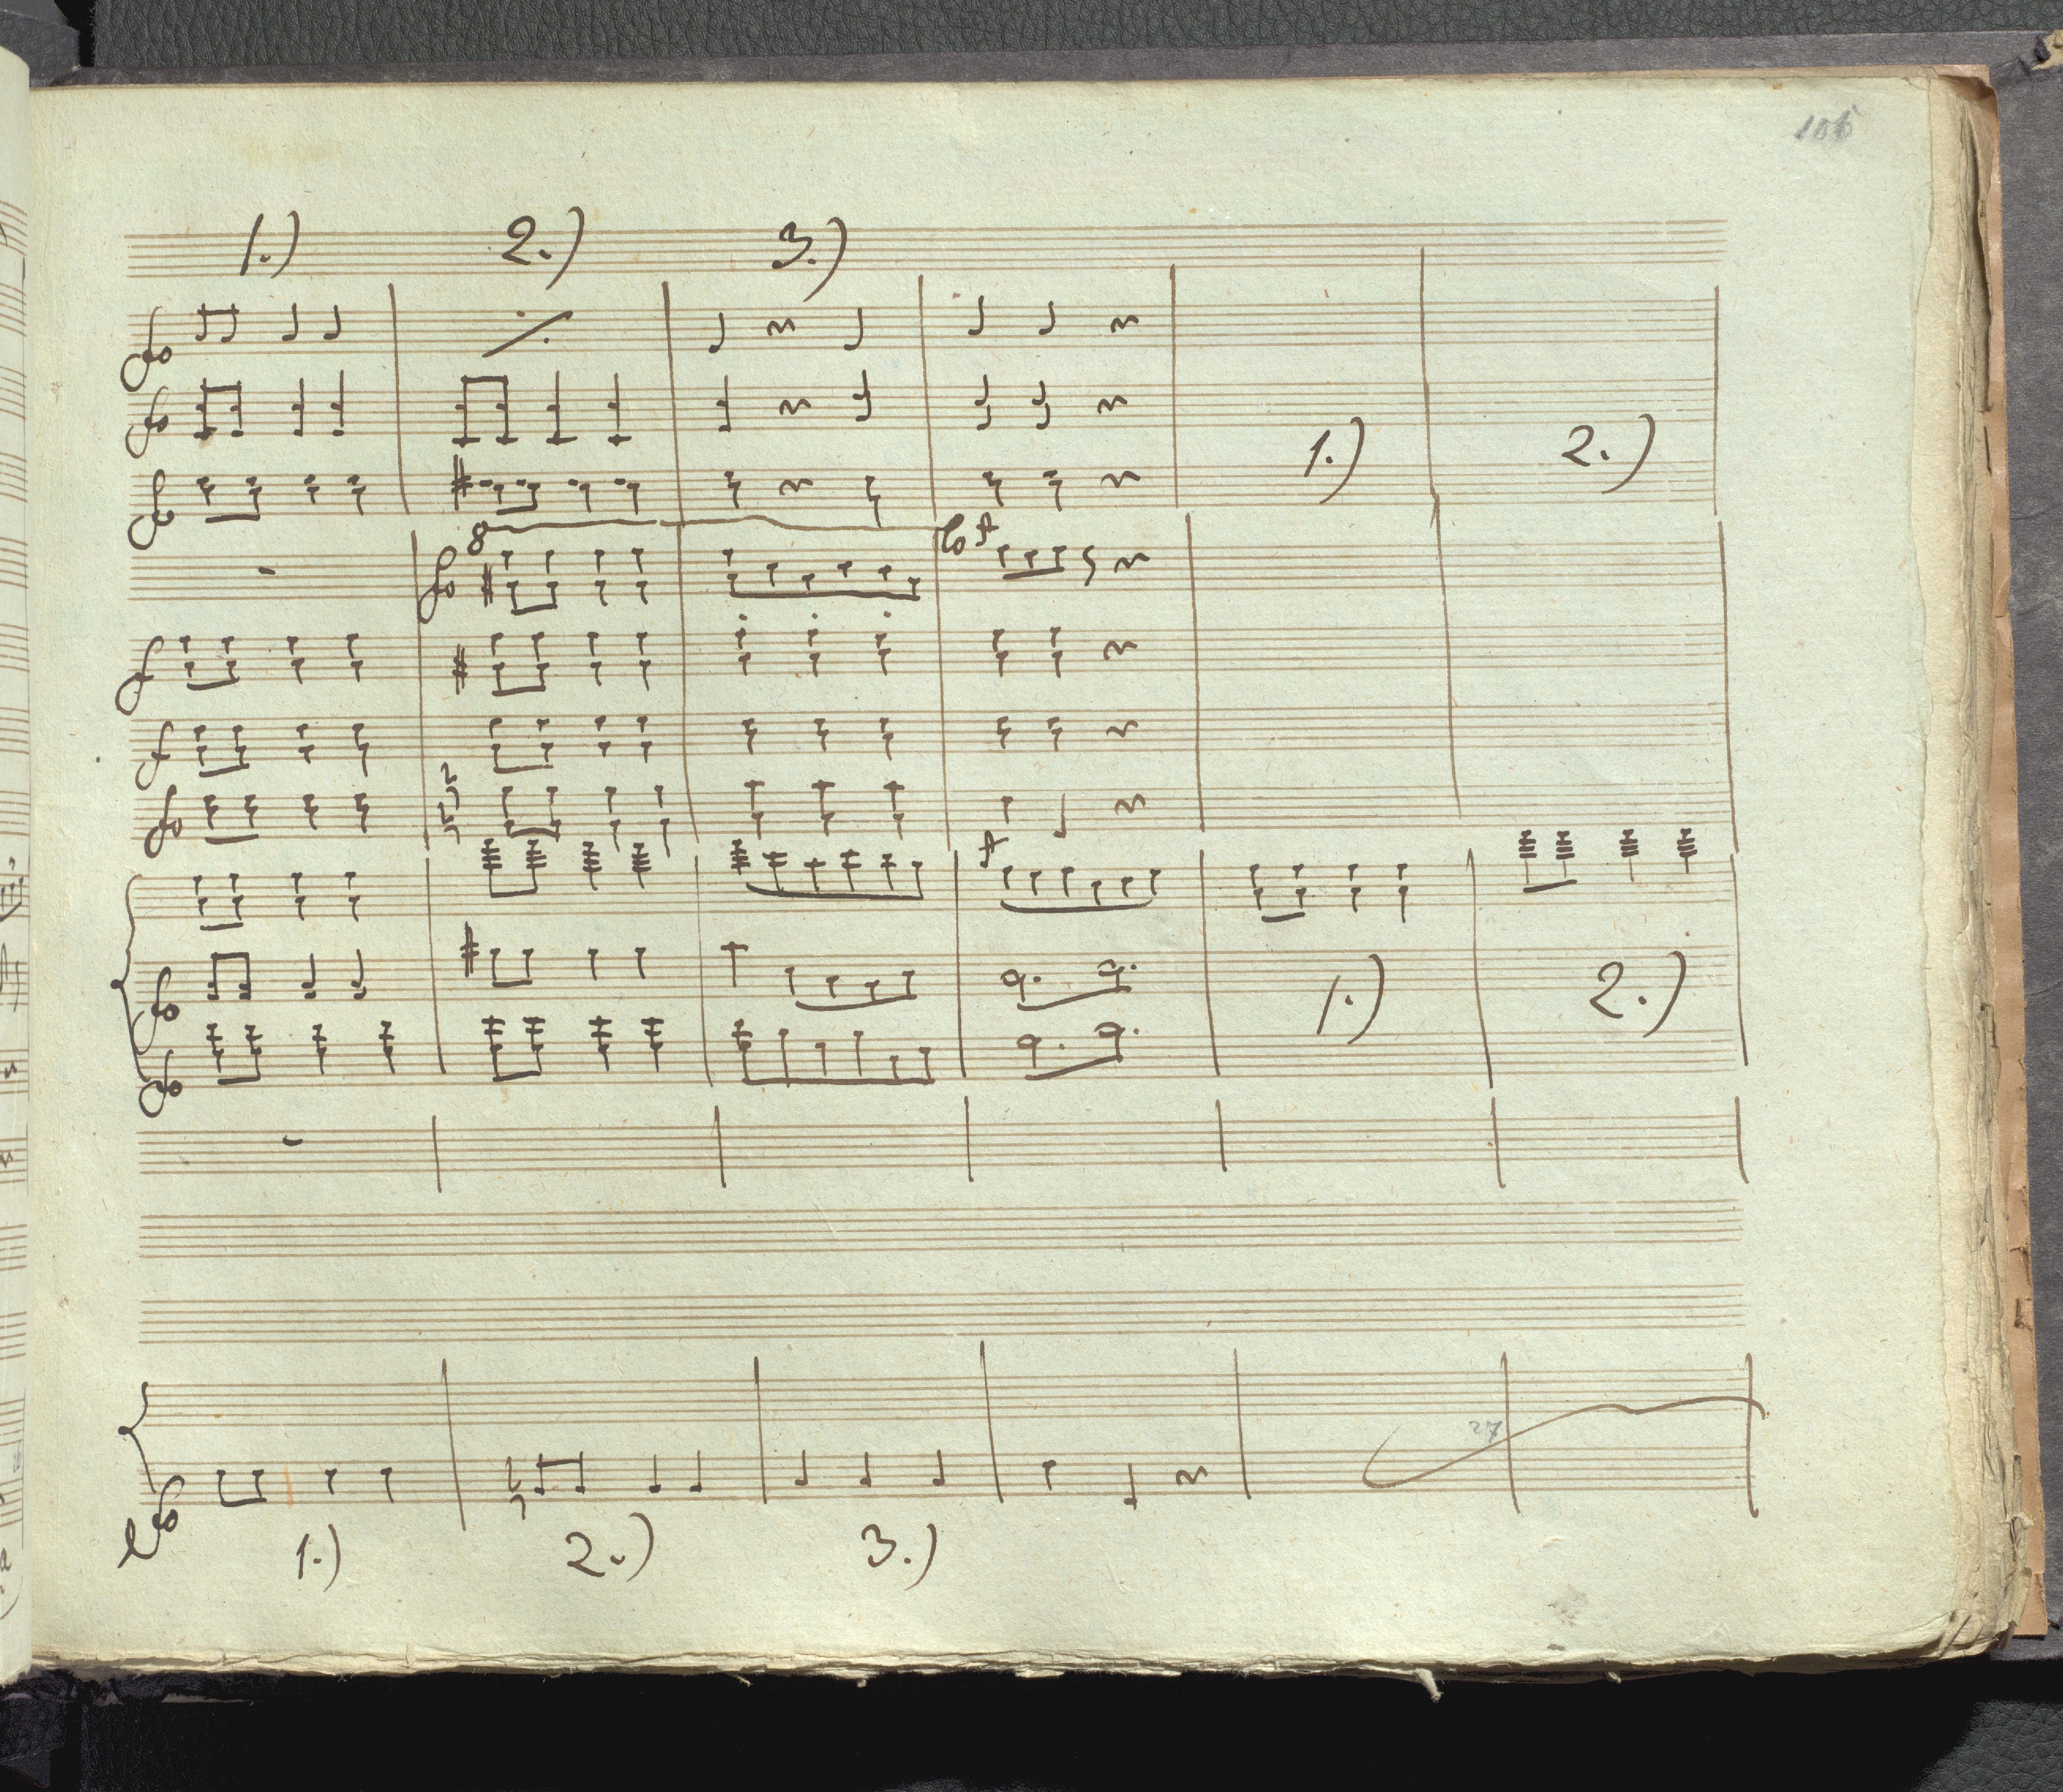 1.) 2.) 3.)
1.) 2.)
8
1.) 2.)
27
1.) 2.) 3.)